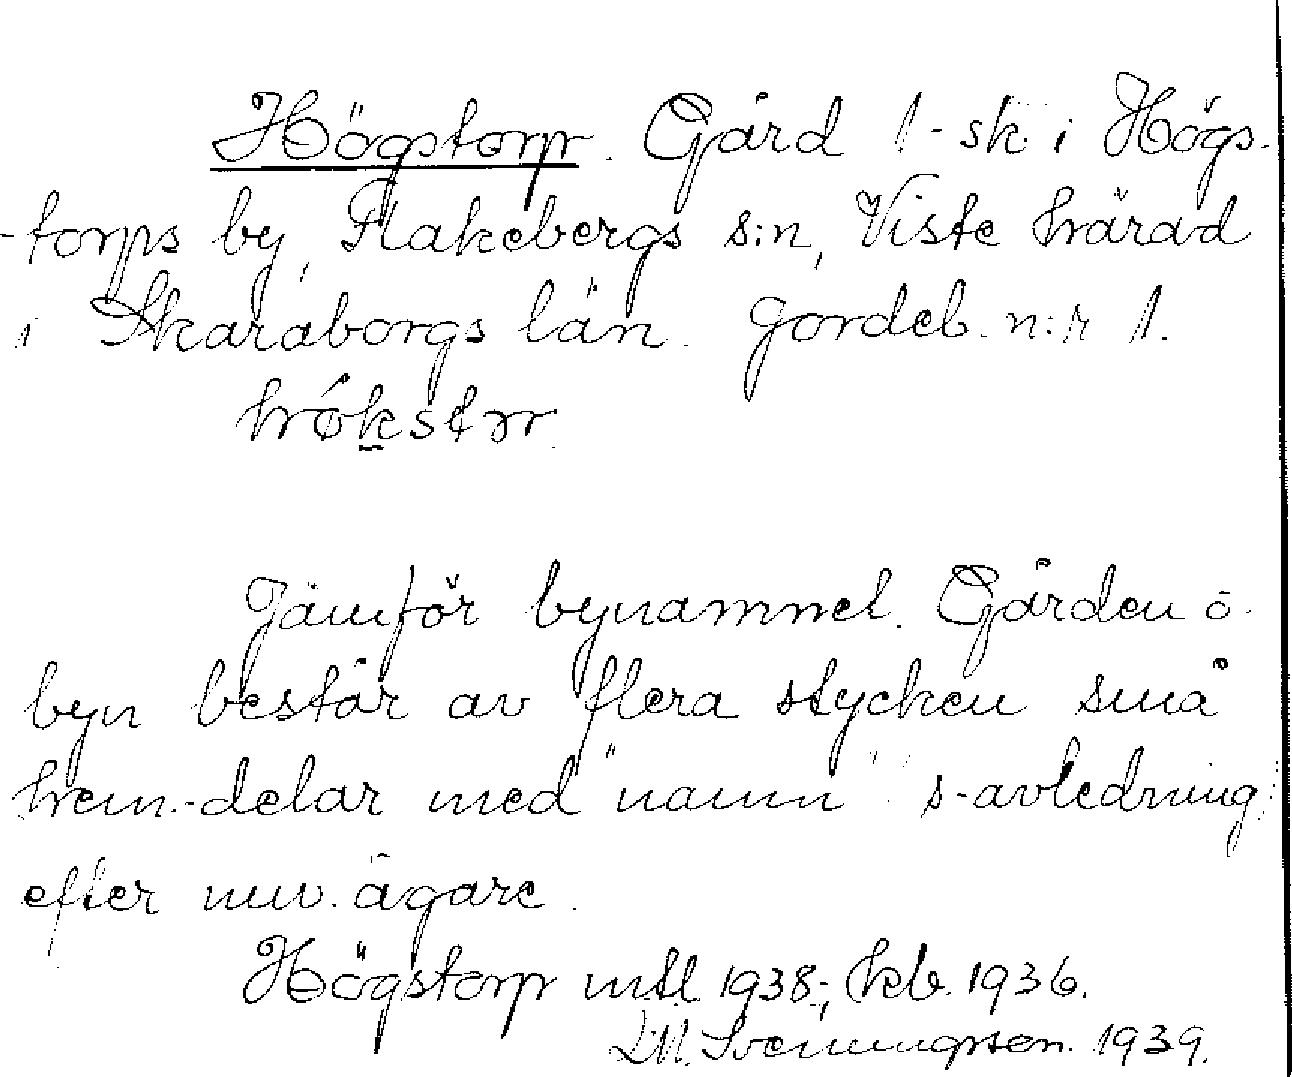 Högstorp. Gård 1-sk i Högs-
-torps by, Flakebergs s:n, Viste härad
i Skaraborgs län. Jordeb. n:r 1.
Jämför bynamnet. Gården o.
byn består av flera stycken små
hem.-delar med "namn" s-avledning
efter nuv. ägare.
Högstorp mtl. 1938; kb. 1936.
1939.